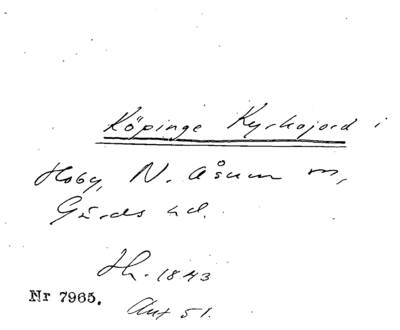 Köpinge Kyrkojord i
Hoby, N. Åsum m,
Gärds hd.
Jh. 1843
Nr 7965.
Akt 51.